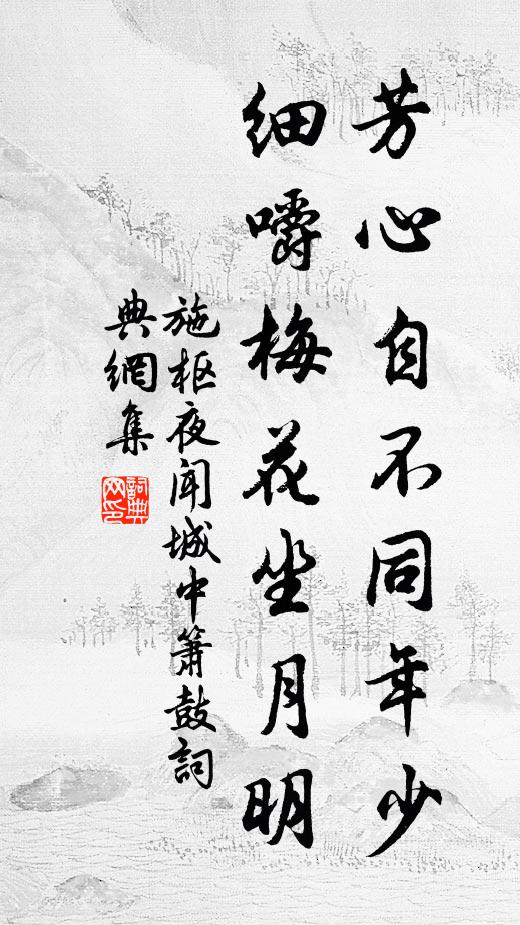 芳心自不同年少
细嚼梅花坐月明
施枢夜闻城中箫鼓词
典網集
詞典網印